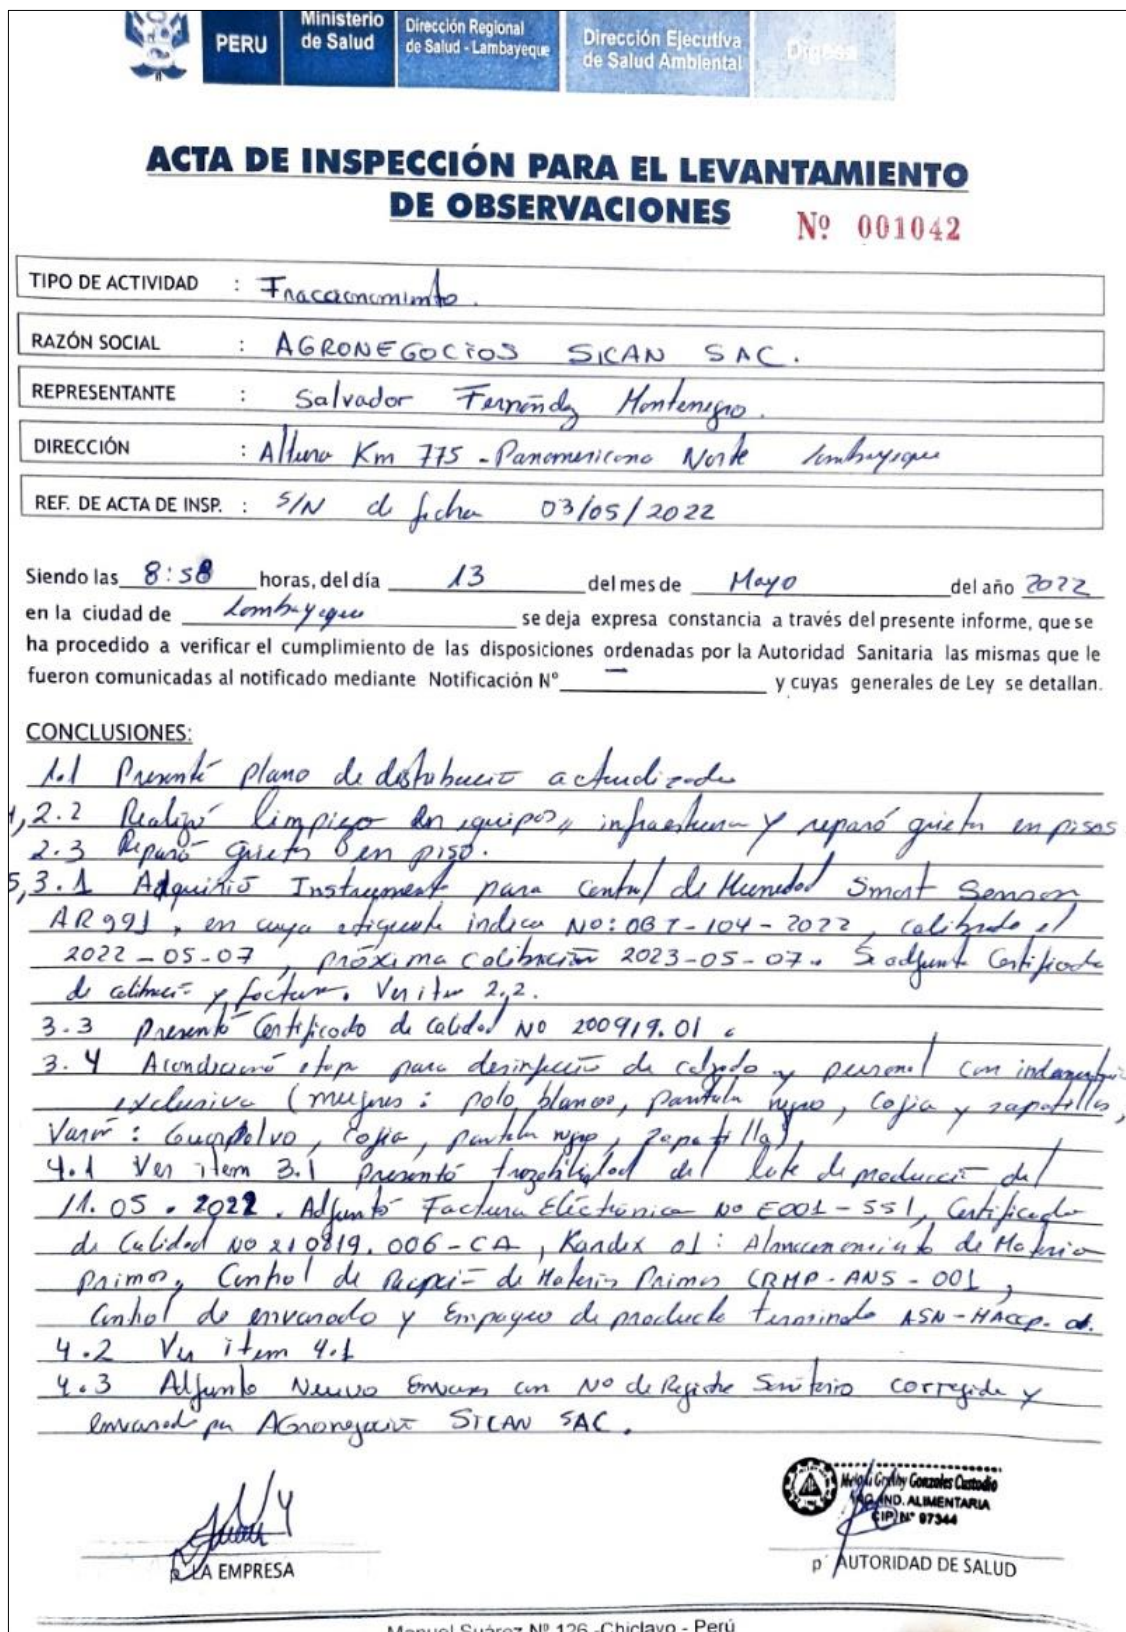 PERU
Ministerio
de Salud
Dirección Regional
de Salud - Lambayeque
Dirección Ejecutiva
de Salud Ambiental
Digesa
ACTA DE INSPECCIÓN PARA EL LEVANTAMIENTO
DE OBSERVACIONES
Nº 001042
TIPO DE ACTIVIDAD : Fraccionamiento.
RAZÓN SOCIAL : AGRONEGOCIOS SICAN SAC.
REPRESENTANTE : Salvador Fernández Montenegro.
DIRECCIÓN : Altura Km 775 - Panamericana Norte Lambayeque
REF. DE ACTA DE INSP. : S/N de fecha 03/05/2022
Siendo las 8:58 horas, del día 13 del mes de Mayo del año 2022
en la ciudad de Lambayeque se deja expresa constancia a través del presente informe, que se
ha procedido a verificar el cumplimiento de las disposiciones ordenadas por la Autoridad Sanitaria las mismas que le
fueron comunicadas al notificado mediante Notificación Nº — y cuyas generales de Ley se detallan.
CONCLUSIONES:
1.1 Presentó plano de distribución actualizado
2.2 Realizó limpieza en equipos, y reparó grietas en pisos
2.3 Reparó grietas en piso.
3.1 Adquirió Instrumento para control de Humedad Smart Sensor
AR991, en cuya etiqueta indica NO: OBT-104-2022, calibrado el
2022-05-07, próxima calibración 2023-05-07. Se adjunta Certificado
de calibración y factura. Ver item 2.2.
3.3 Presentó Certificado de Calidad NO 200919.01.
3.4 Acondicionó etapa para desinfección de calzado y personal con indumentaria
exclusiva (mujeres: polo blanco, pantalón negro, cofia y zapatillas,
Varón: Guardapolvo, cofia, pantalón negro, zapatilla),
4.1 Ver item 3.1 presentó trazabilidad del lote de producción del
11.05.2022. Adjuntó Factura Electrónica NO E001-551, Certificado
de Calidad NO 210819.006-CA, Kardex 01: Almacenamiento de Materia
Primas, Control de Recepción de Materia Primas CRMP-ANS-001,
Control de envasado y Empaque de producto terminado ASN-HACCP. 01.
4.2 Ver item 4.1
4.3 Adjunto Nuevo Envases con Nº de Registro Sanitario corregido y
envasado por Agronegocios SICAN SAC.
Gonzales Custodio
ING. IND. ALIMENTARIA
CIP. Nº 97344
p' LA EMPRESA
p' AUTORIDAD DE SALUD
Manuel Suárez Nº 126 - Chiclayo - Perú